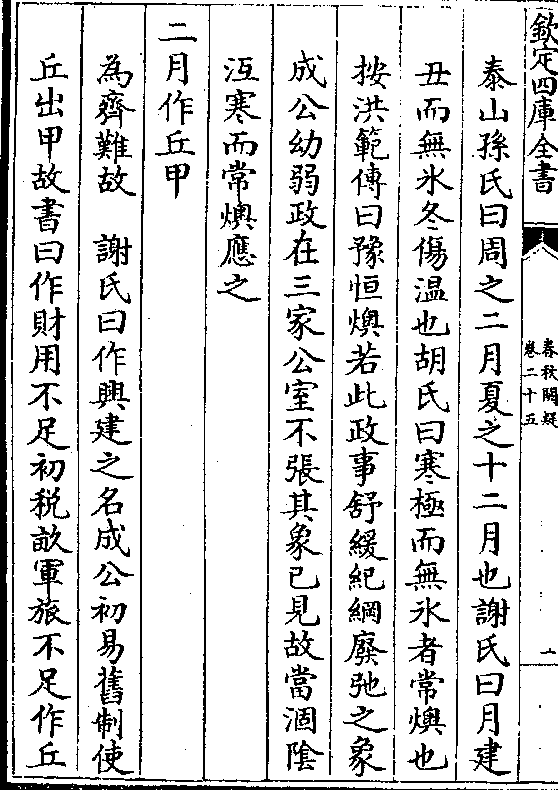 欽定四庫全書
春秋闕疑
卷二十五
一
泰山孫氏曰周之二月夏之十二月也謝氏曰月建
丑而無氷冬傷温也胡氏曰寒極而無氷者常燠也
按洪範傳曰豫恒燠若此政事舒緩紀綱廢弛之象
成公幼弱政在三家公室不張其象已見故當涸陰
沍寒而常燠應之
二月作丘甲
為齊難故　謝氏曰作興建之名成公初易舊制使
丘出甲故書曰作財用不足初税畝軍旅不足作丘